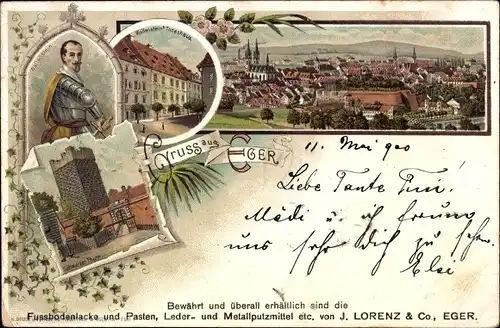 Wallenstein's Todeshaus
Gruss aus
EGER.
11. Mai 900
Liebe Tante Tini.
Mädi u. ich freuen
uns sehr Dich zu sehen.
Elsi
Bewährt und überall erhältlich sind die
Fussbodenlacke und Pasten, Leder- und Metallputzmittel etc. von J. LORENZ & Co, EGER.